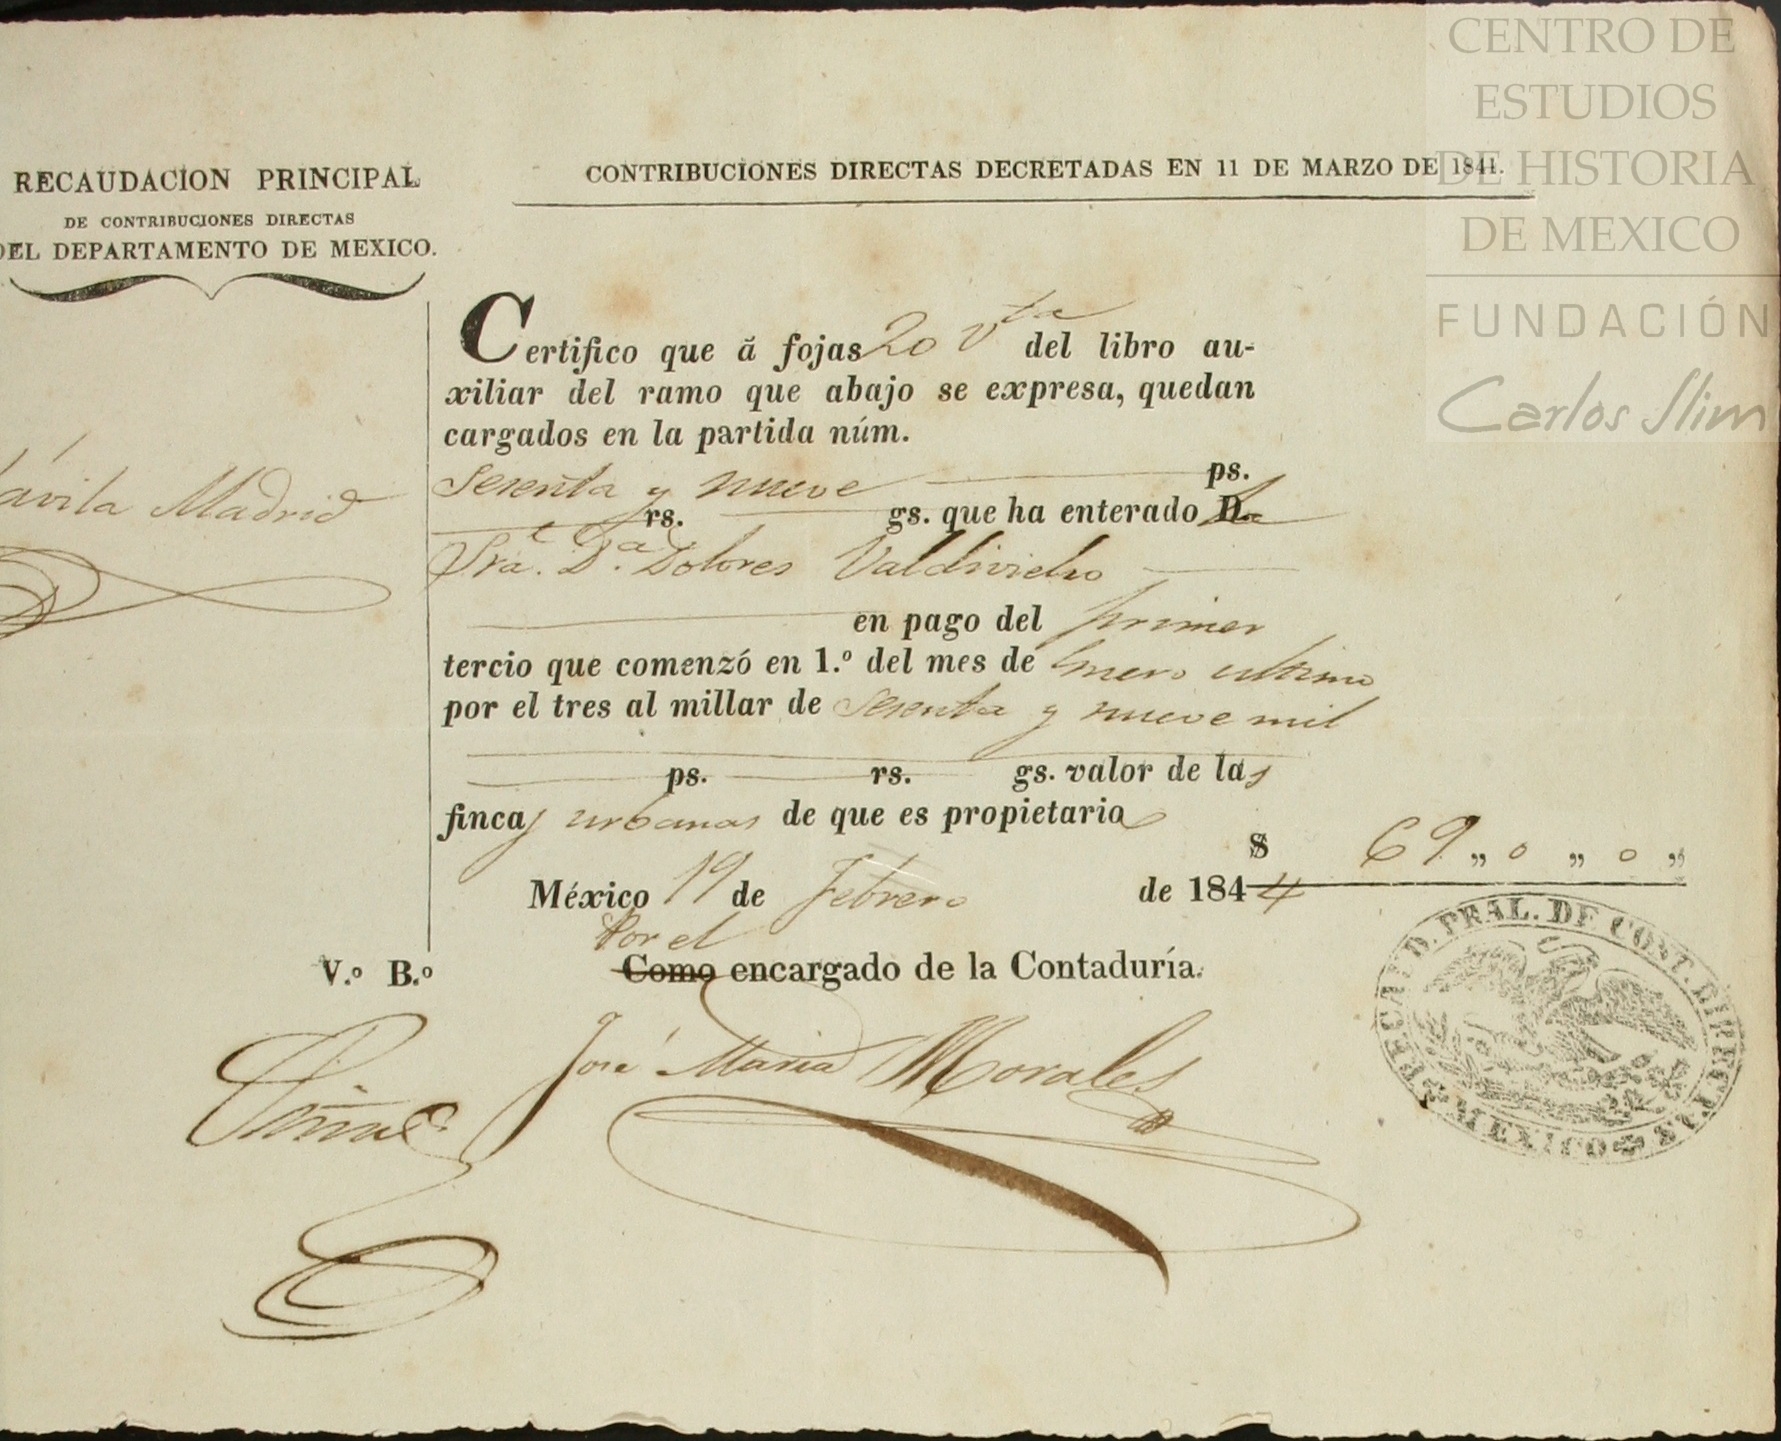 CENTRO DE
ESTUDIOS
DE HISTORIA
DE MEXICO
FUNDACIÓN
Carlos Slim
RECAUDACION PRINCIPAL
DE CONTRIBUCIONES DIRECTAS
DEL DEPARTAMENTO DE MEXICO.
CONTRIBUCIONES DIRECTAS DECRETADAS EN 11 DE MARZO DE 1841.
avila Madrid
Certifico que á fojas 20 vta del libro au-
xiliar del ramo que abajo se expresa, quedan
cargados en la partida núm.
Sesenta y nueve ps.
rs. gs. que ha enterado D. la
Sra. Da. Dolores Valdivielso
en pago del primer
tercio que comenzó en 1.º del mes de Enero ultimo
por el tres al millar de Sesenta y nueve mil
ps. rs. gs. valor de las
fincas urbanas de que es propietaria
$ 69 ,, 0 ,, 0 ,,
México 19 de Febrero de 1844
Por el
Como encargado de la Contaduría.
V.º B.º
José Maria Morales
RECAUD. PRAL. DE CONT. DIRECTAS
MEXICO